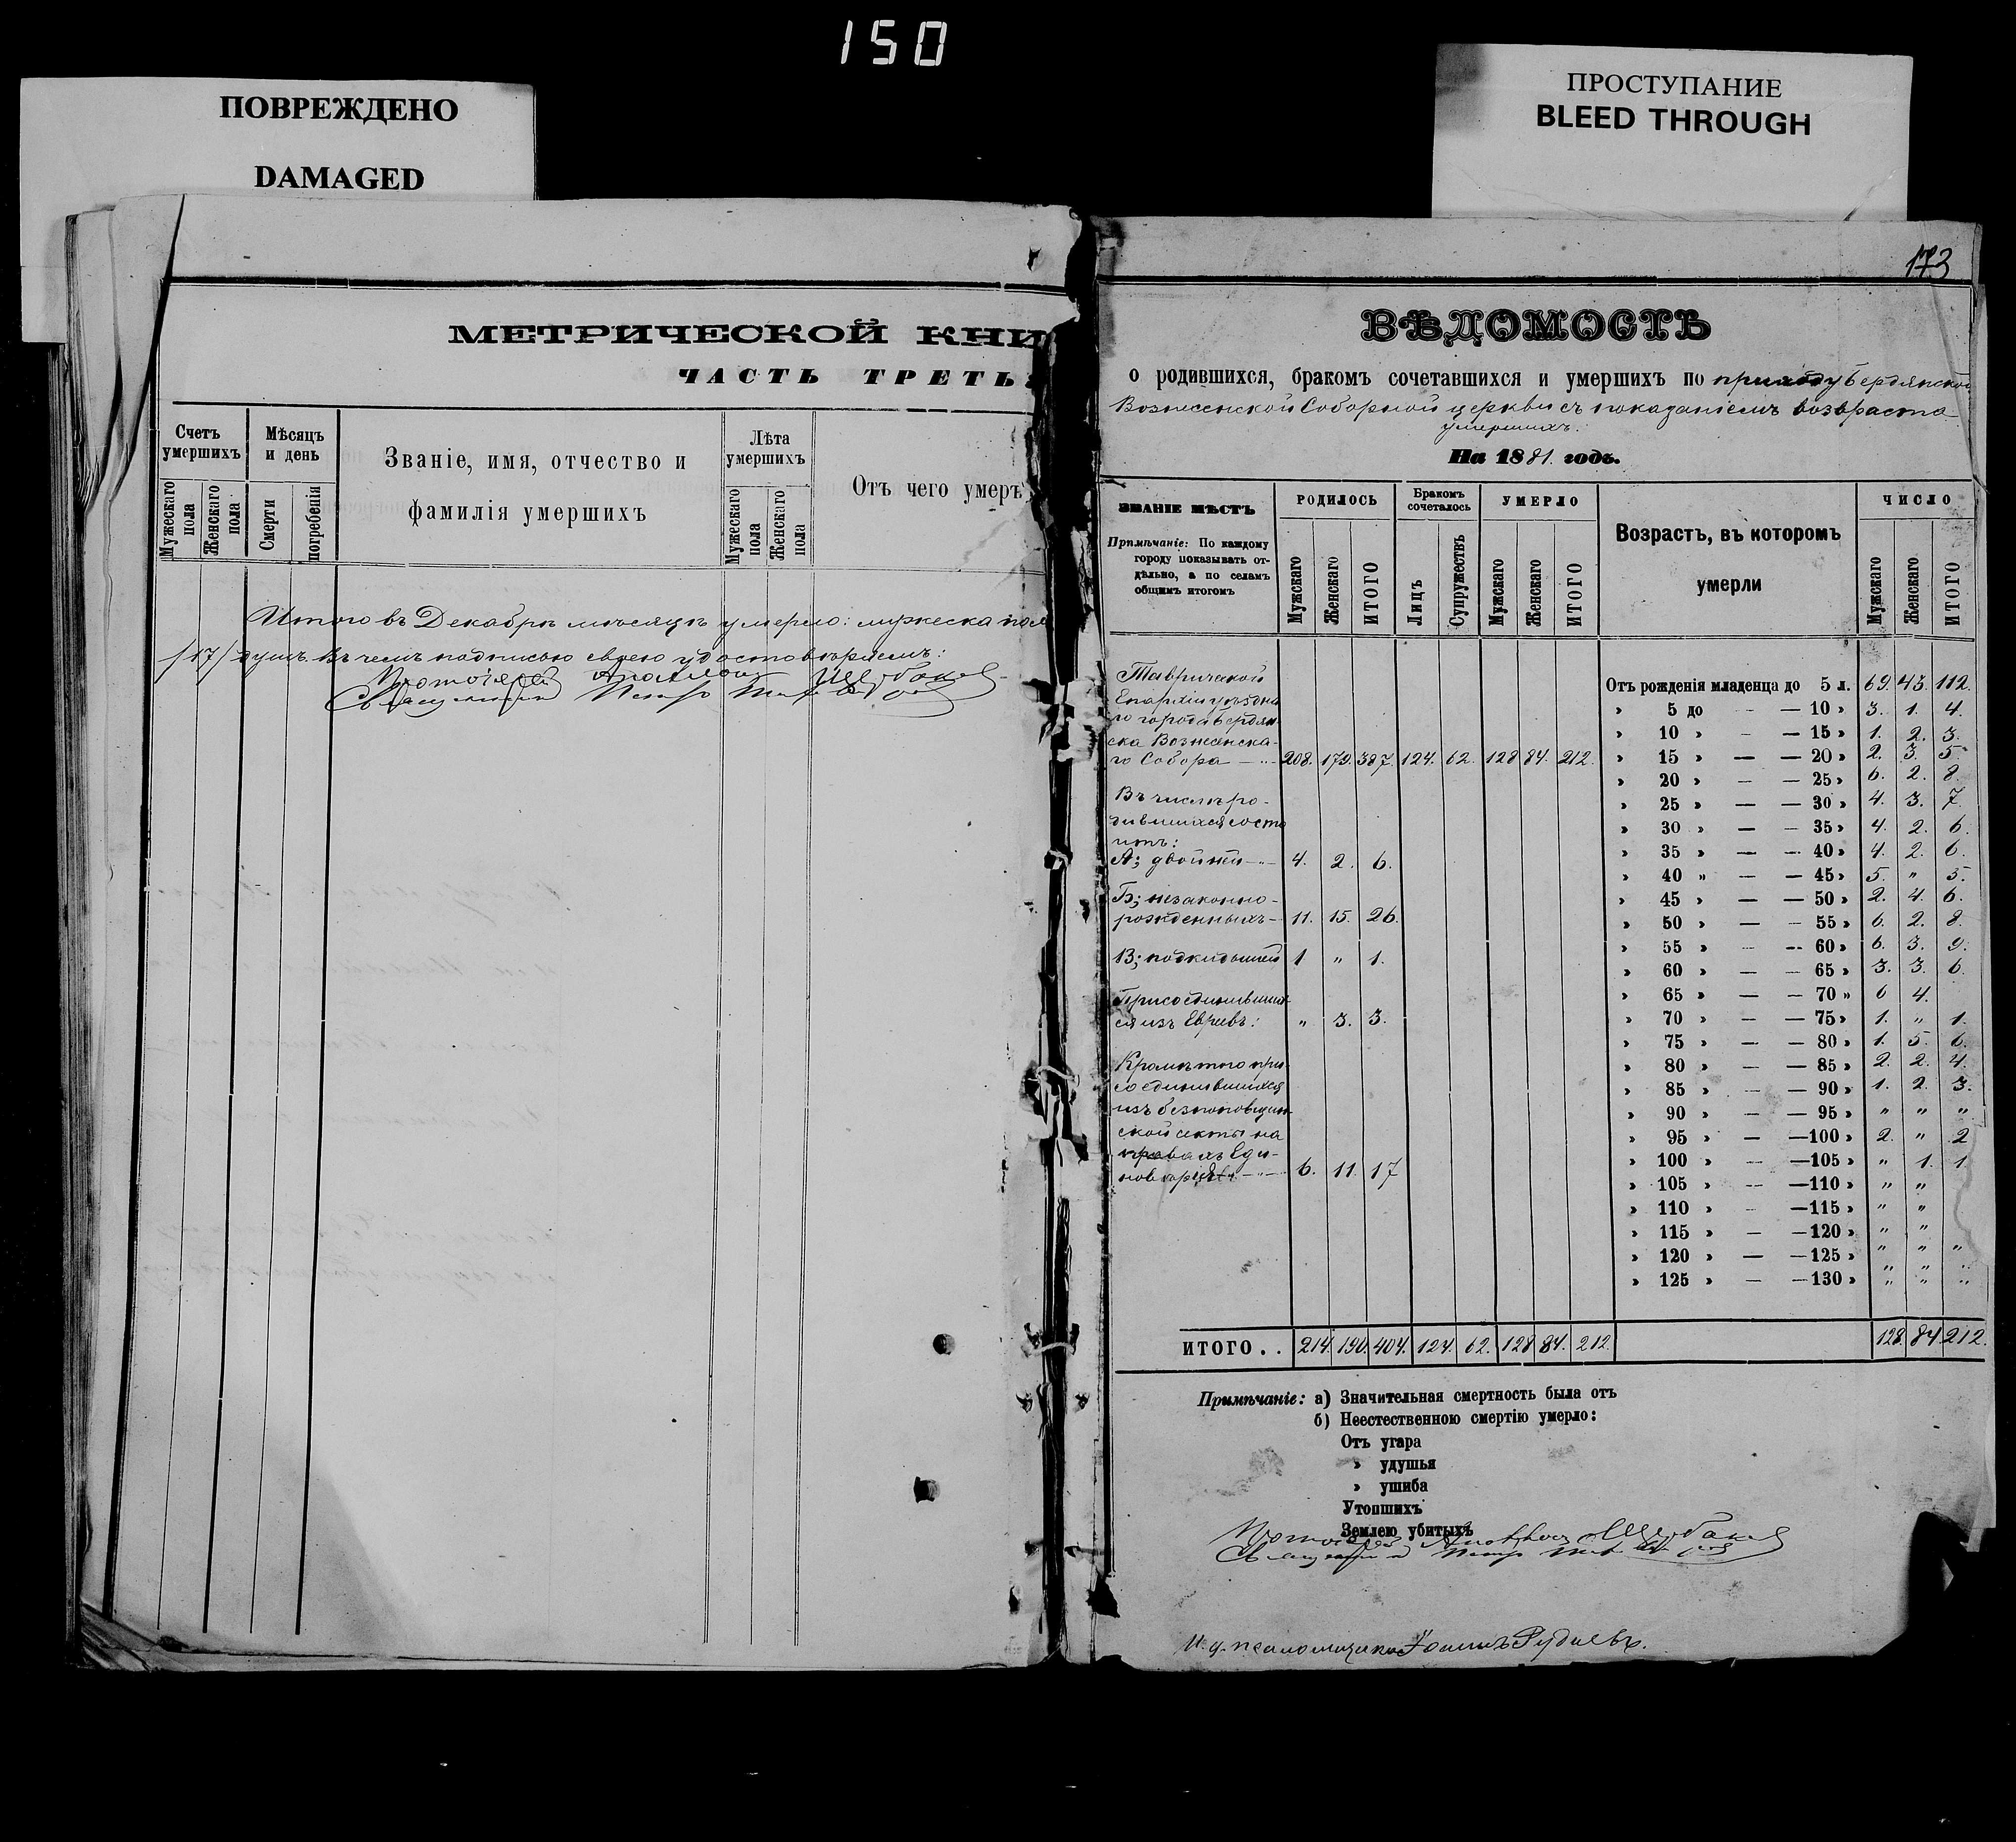 150
ПОВРЕЖДЕНО
DAMAGED
ПРОСТУПАНИЕ
BLEED THROUGH
МЕТРИЧЕСКОЙ КНИ
ЧАСТЬ ТРЕТЬ
Счетъ умершихъ
Мѣсяцъ и день
Званіе, имя, отчество и
фамилія умершихъ
Лѣта умершихъ
Отъ чего умеръ
Мужескаго пола
Женскаго пола
Смерти
погребенія
Мужескаго пола
Женскаго пола
Итого въ Декабрѣ мѣсяцѣ умерло: мужеска пол
/17/ душъ. Въ чемъ подписью своею удостовѣряемъ:
Протоіерей Щербаков
Священник Петр
173
ВѢДОМОСТЬ
о родившихся, бракомъ сочетавшихся и умершихъ по приходу Бердянской
Вознесенской Соборной церкви съ показаніемъ возвраста
умершихъ.
На 1881. годъ.
ЗВАНІЕ МѢСТЪ
Примѣчаніе: По каждому
городу показывать от-
дѣльно, а по селамъ
общимъ итогомъ
РОДИЛОСЬ
Мужскаго Женскаго ИТОГО
Бракомъ сочеталось
Лицъ Супружествъ
УМЕРЛО
Мужскаго Женскаго ИТОГО
Возрастъ, въ которомъ
умерли
ЧИСЛО
Мужскаго Женскаго ИТОГО
Таврической
Епархіи уѣздна
го города Бердян-
ска Вознесенска-
го Собора — 208. 179. 387. 124. 62. 128 84. 212.
Въ числѣ ро-
дившихся состо
итъ:
А; двойней 4. 2. 6.
Б; незаконно-
рожденныхъ 11. 15. 26.
В; подкидышей 1 " 1.
Присоединивших
ся изъ Евреевъ: " 3. 3.
Кромѣ того при
соединившихся
изъ безпоповщин
ской секты на
правахъ Еди-
новѣрія 6. 11. 17
Отъ рожденія младенца до 5 л. 69. 43. 112.
» 5 до — 10 » 3. 1. 4.
» 10 » — 15 » 1. 2. 3.
» 15 » — 20 » 2. 3. 5
» 20 » — 25 » 6. 2. 8.
» 25 » — 30 » 4. 3. 7.
» 30 » — 35 » 4. 2. 6.
» 35 » — 40 » 4. 2. 6.
» 40 » — 45 » 5. " 5.
» 45 » — 50 » 2. 4. 6.
» 50 » — 55 » 6. 2. 8.
» 55 » — 60 » 6. 3. 9.
» 60 » — 65 » 3. 3. 6.
» 65 » — 70 » 6 4.
» 70 » — 75 » 1. " 1.
» 75 » — 80 » 1. 5. 6.
» 80 » — 85 » 2. 2. 4.
» 85 » — 90 » 1. 2. 3.
» 90 » — 95 » " " "
» 95 » — 100 » 2. " 2
» 100 » — 105 » " 1. 1
» 105 » — 110 » " "
» 110 » — 115 » " "
» 115 » — 120 » " "
» 120 » — 125 » " " "
» 125 » — 130 » " " "
ИТОГО . . 214. 190. 404. 124. 62. 128 84. 212. 128. 84. 212.
Примѣчаніе: а) Значительная смертность была отъ
б) Неестественною смертію умерло:
Отъ угара
» удушья
» ушиба
Утопшихъ
Землею убитыхъ
Протоіерей Щербаков
Священник Петр
И. д. псаломщика Іоаннъ Рудневъ.